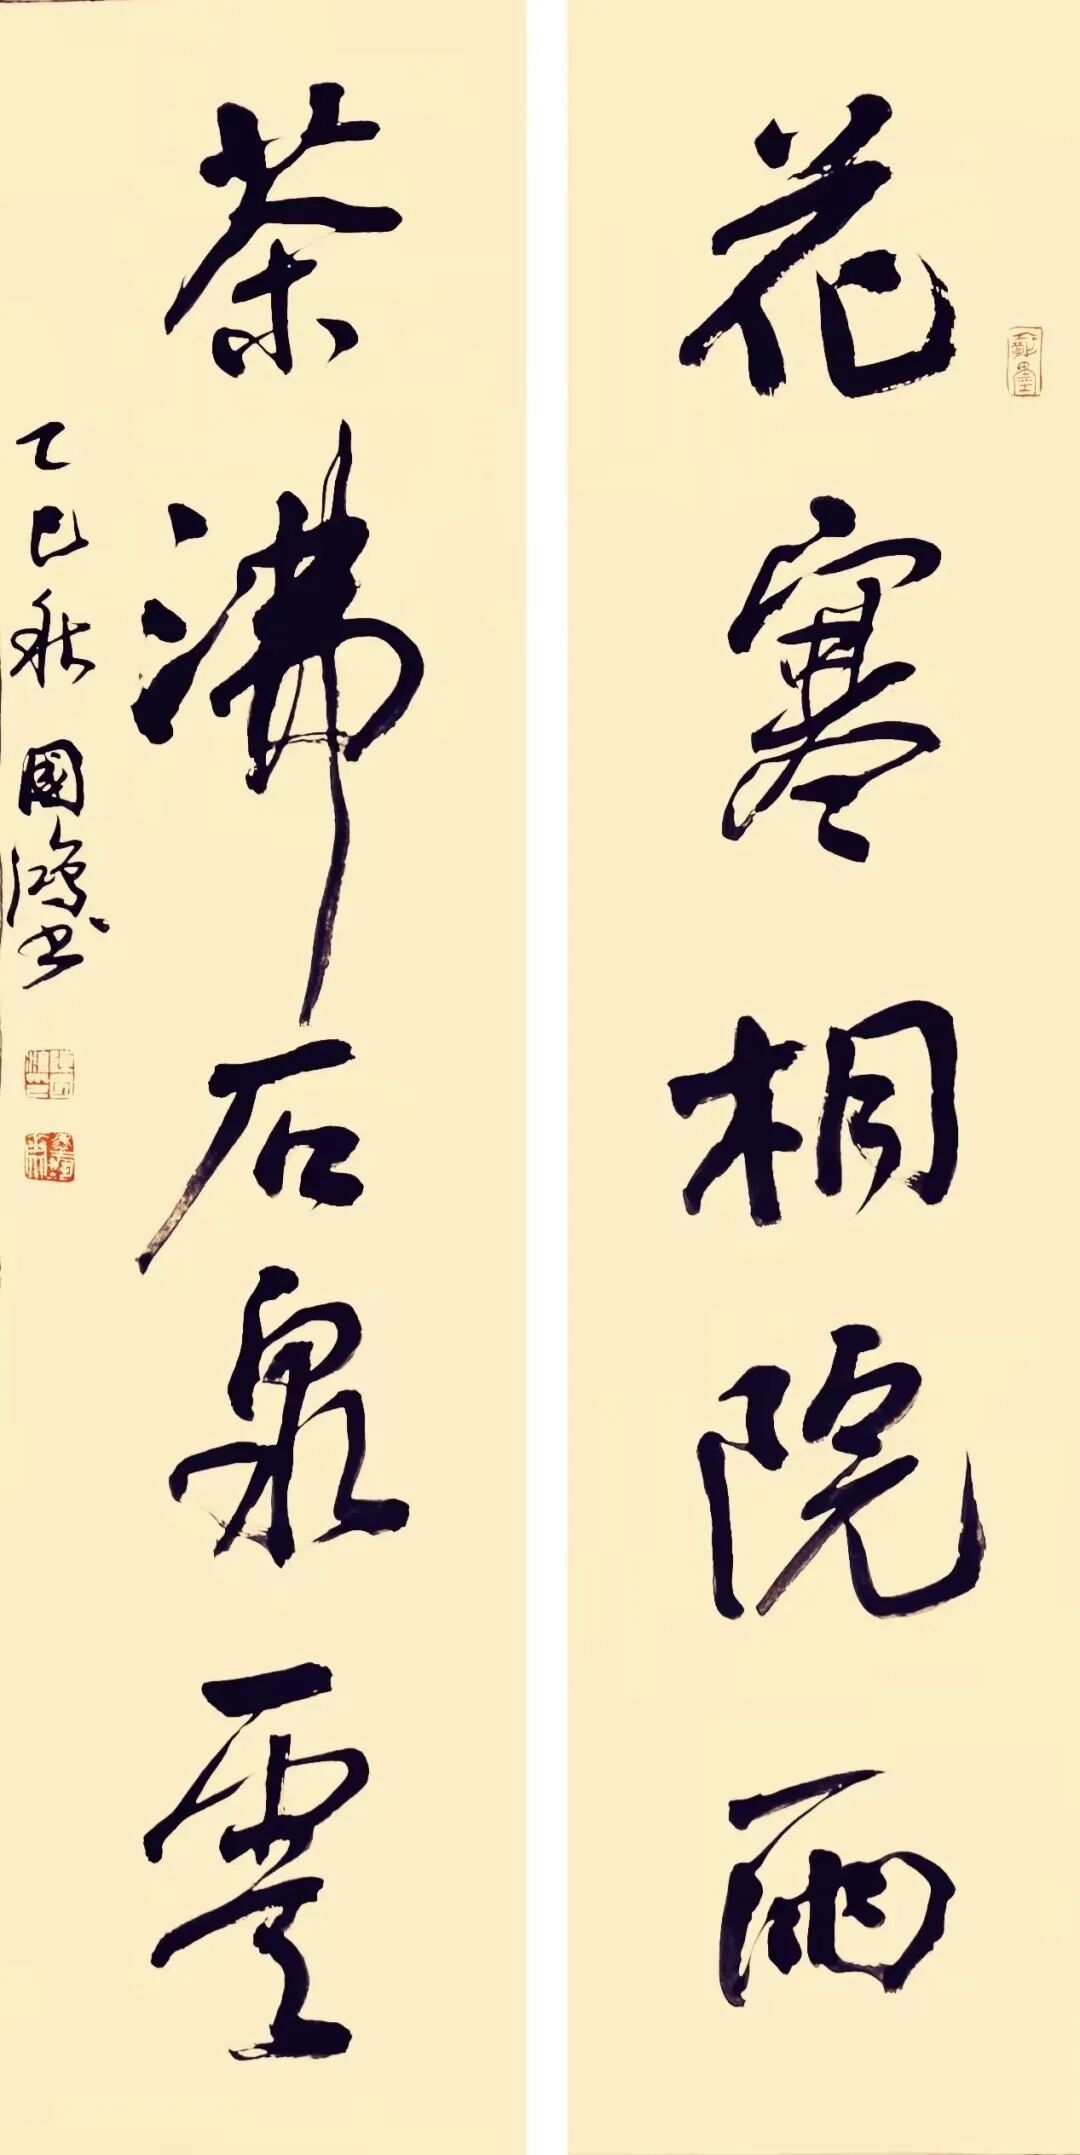 花寒桐院雨
茶沸石泉雲
乙巳秋 國鴻書